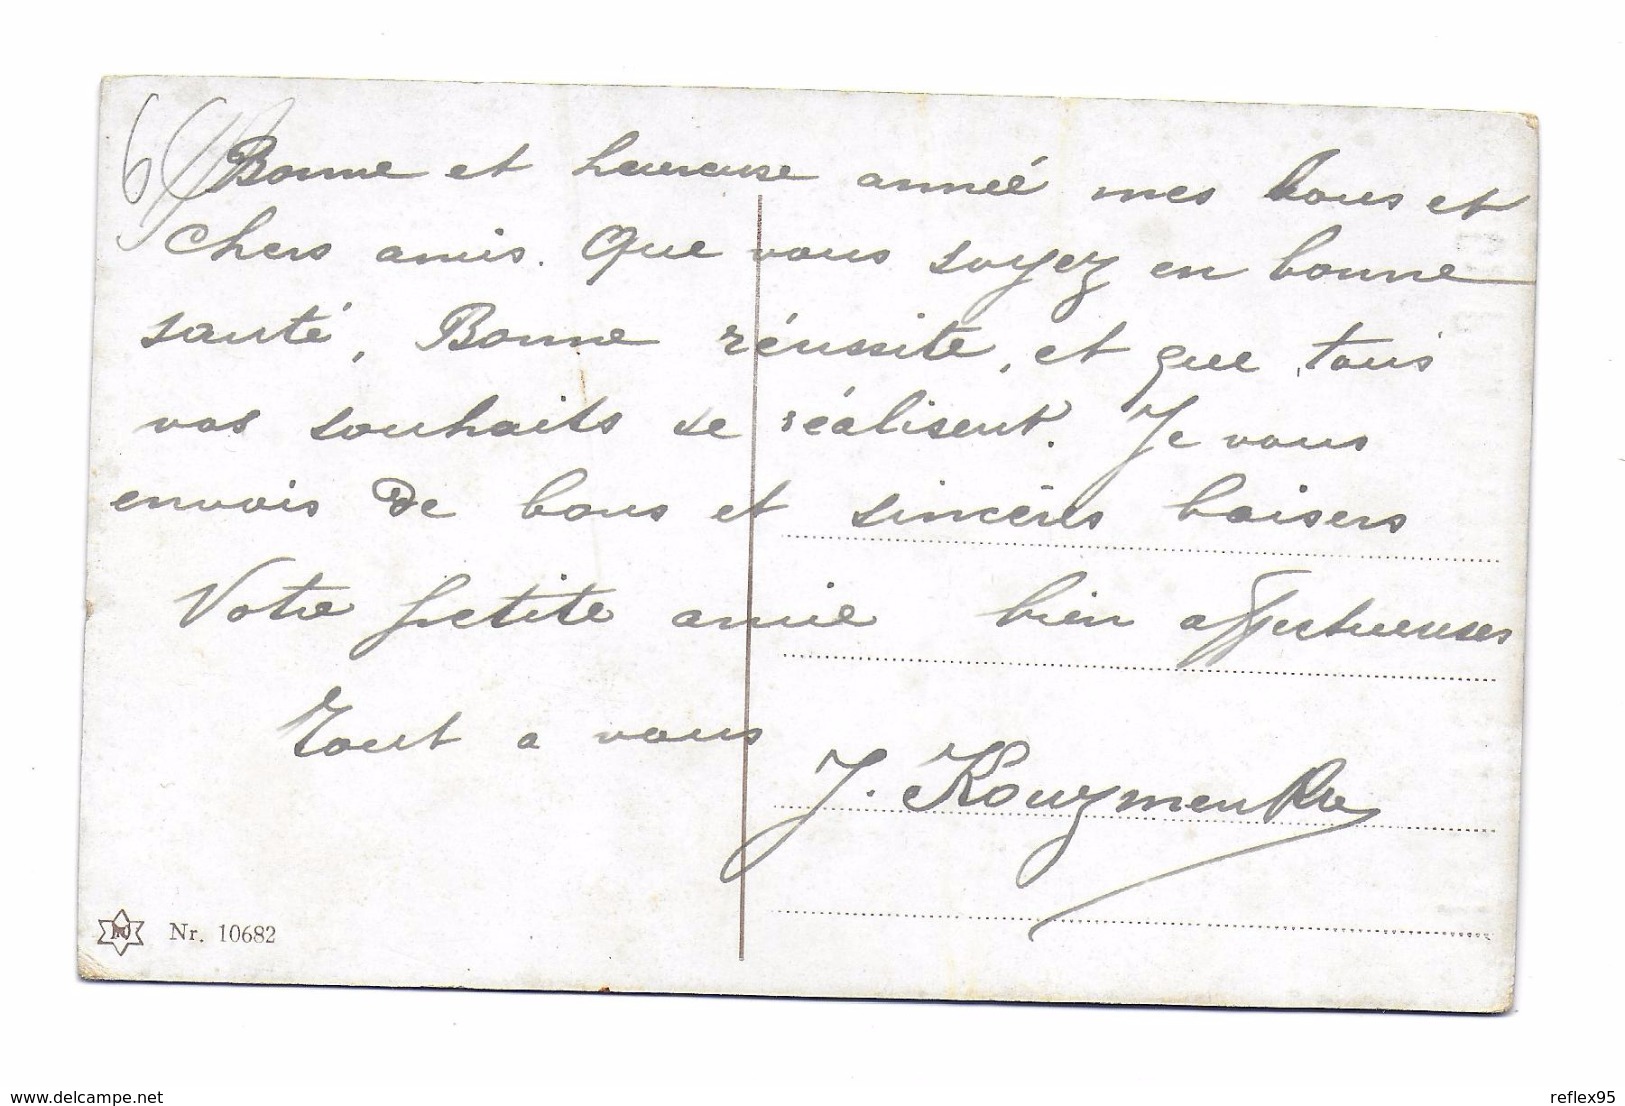 Bonne et heureuse année mes bons et
chers amis. Que vous soyez en bonne
santé, Bonne réussite, et que tous
vos souhaits se réalisent. Je vous
envois de bons et sincères baisers
Votre petite amie bien affectueuses
Tout a vous
J.
Nr. 10682
www.delcampe.net
reflex95